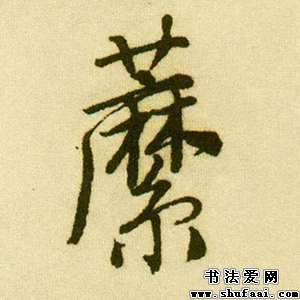 䕷
书法爱网
www.shufaai.com